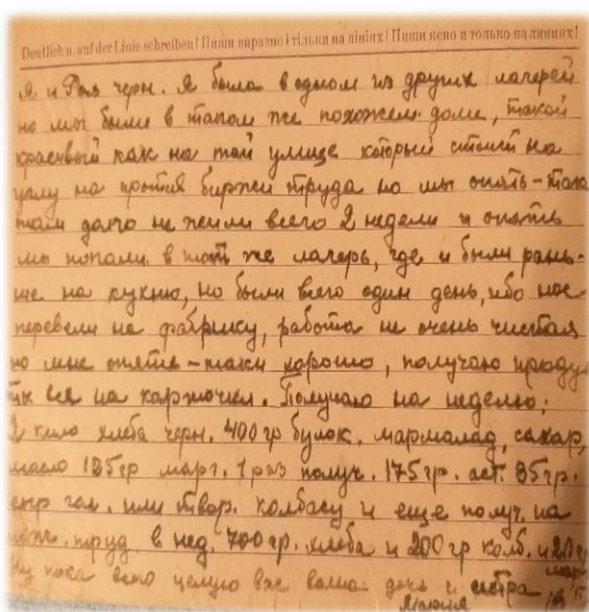 Deutlich u. auf der Linie schreiben! Пиши виразно і тільки на лініях! Пиши ясно и только на линиях!
Я и Рая черн. Я была в одном из других лагерей
но мы были в таком же похожем доме, такой
красивый как на той улице который стоит на
углу на против биржи труда но мы опять-таки
там долго не жили всего 2 недели и опять
мы попали в тот же лагерь, где и были рань-
ше на кухню, но были всего один день, ибо нас
перевели на фабрику, работа не очень чистая
но мне опять-таки хорошо, получаю продук
ты все на карточки. Получаю на неделю:
2 кило хлеба черн. 400 гр булок. мармалад, сахар,
масло 125 гр марг. 1 раз получ. 175 гр. 85 гр.
или твор. колбасу и еще получ. на
в нед. 700 гр. хлеба и 200 гр колб. и 20 гр
Ну пока всего целую вас ваша дочь и сестра